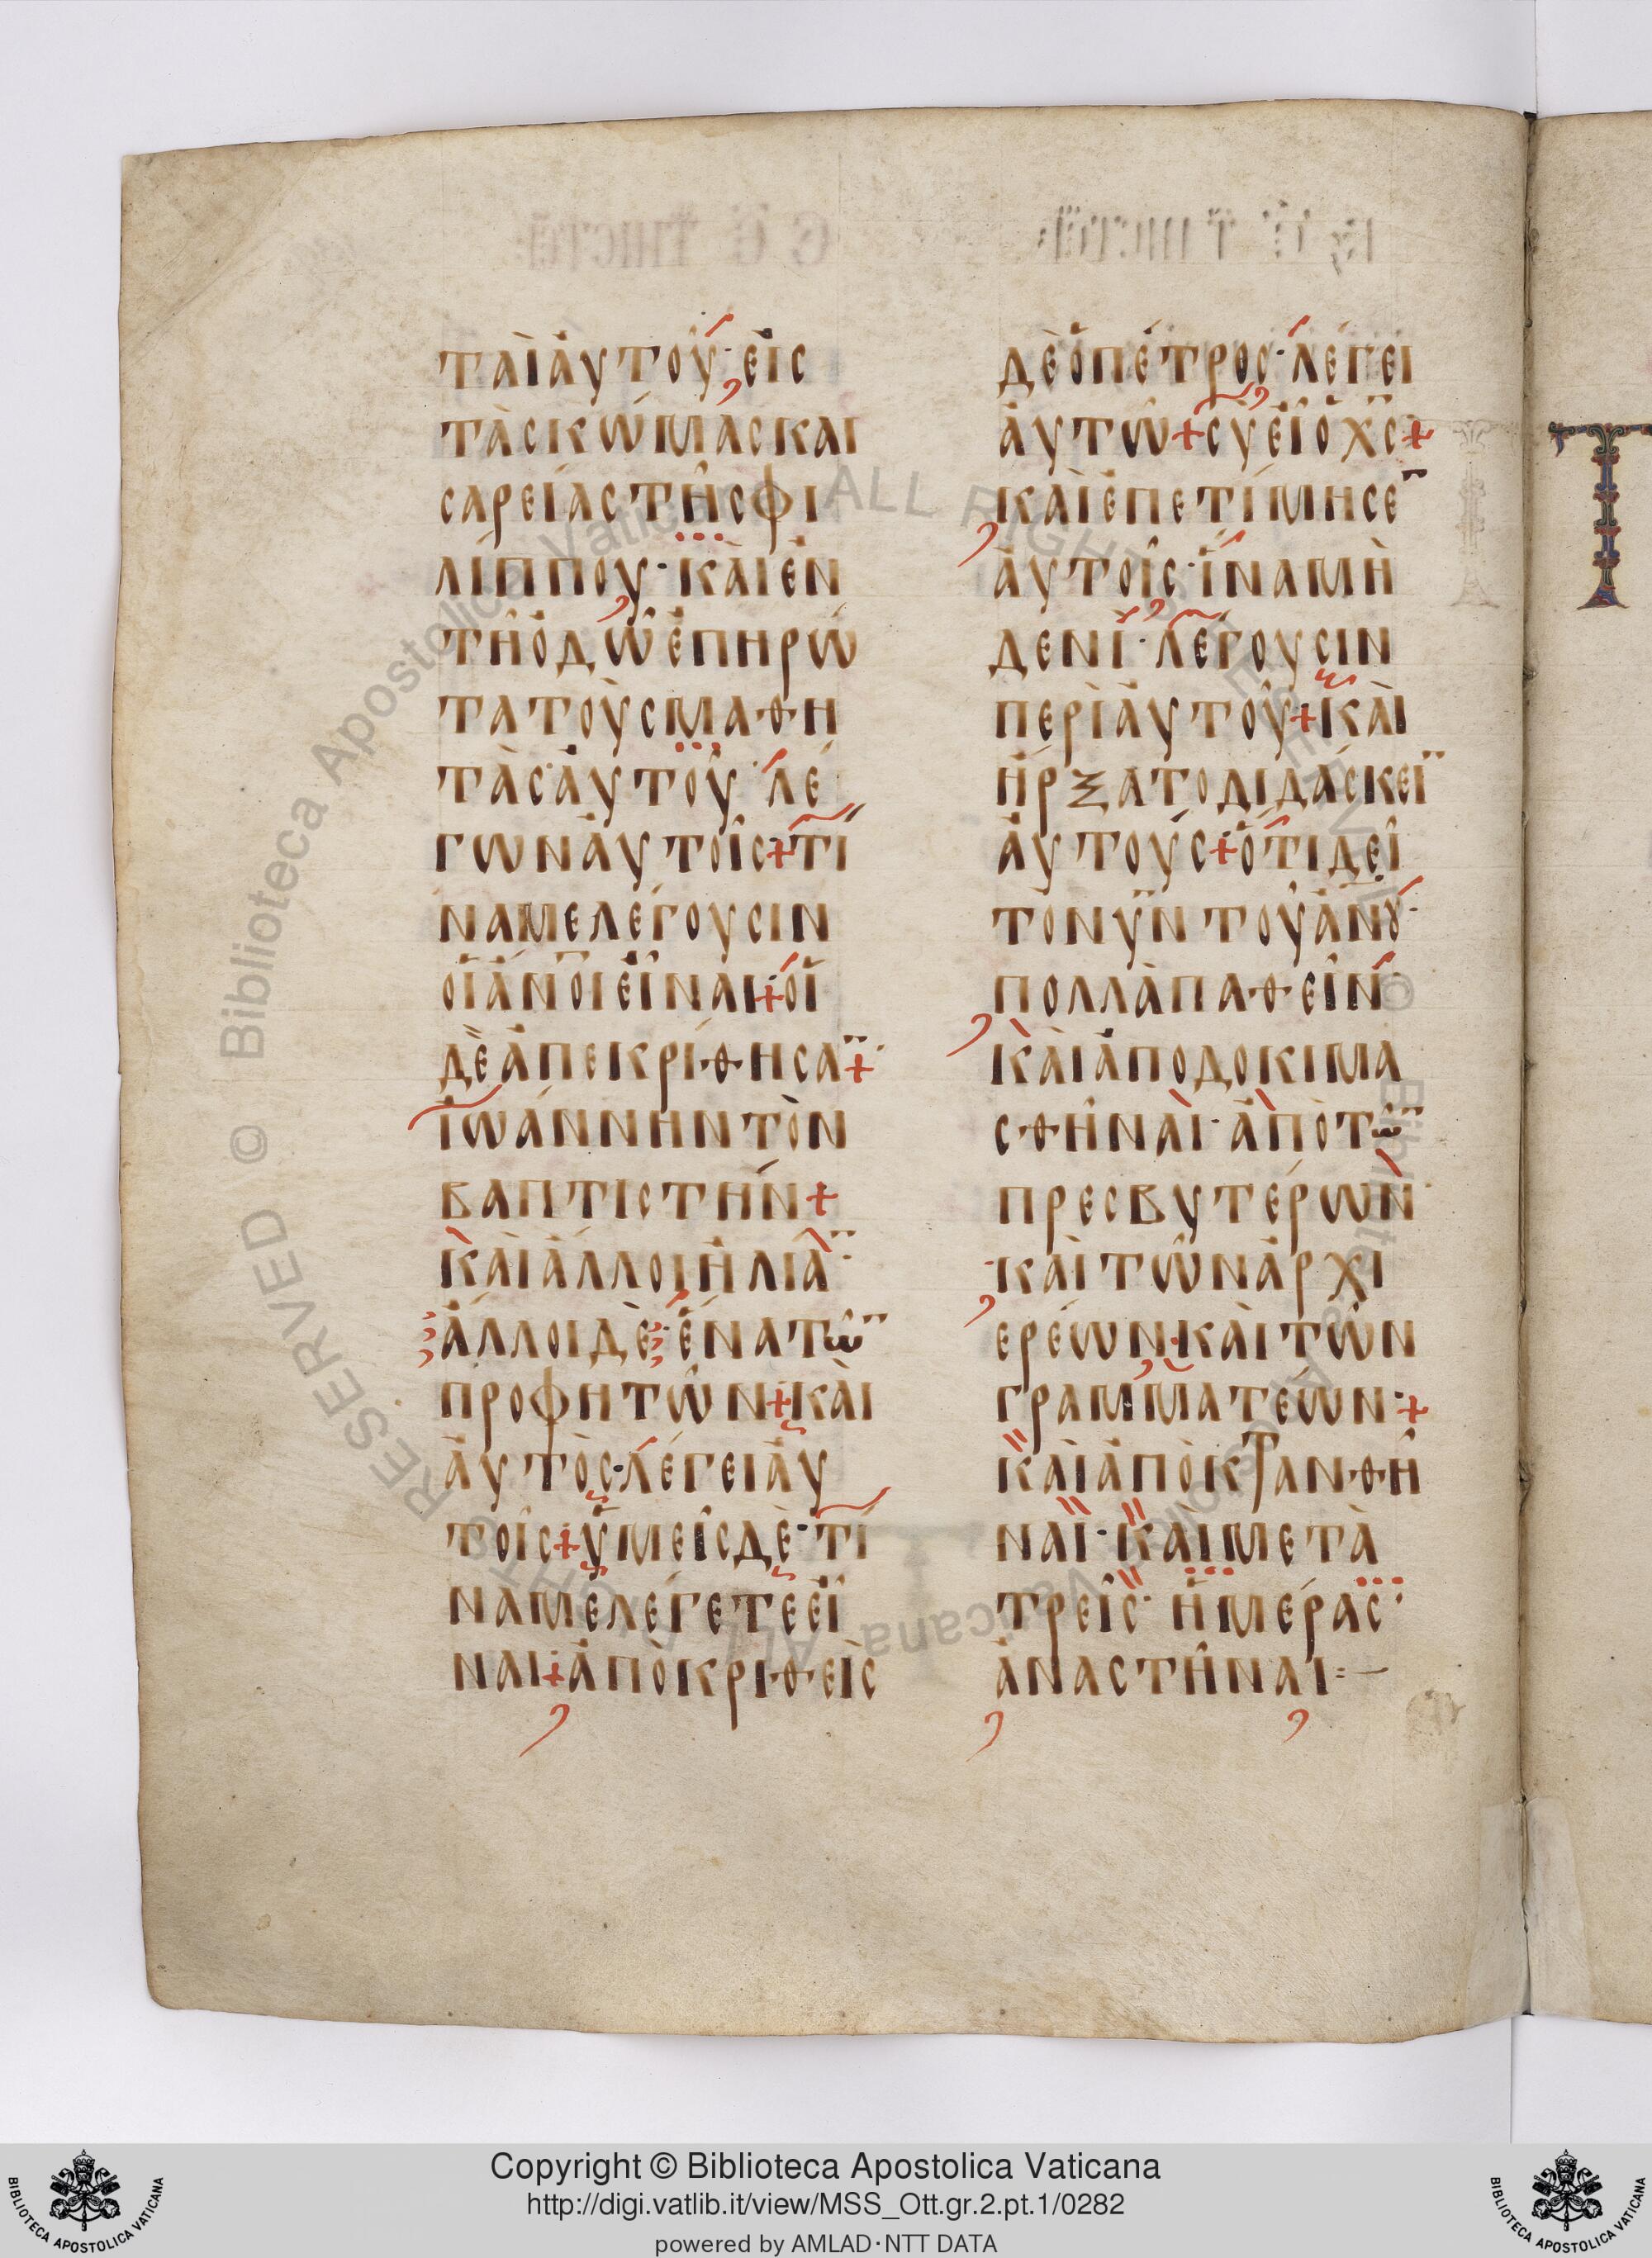 ΤΑΙ ΑΥΤΟΥ· ΕΙΣ
ΤΑΣ ΚΩΜΑΣ ΚΑΙ
ΣΑΡΕΙΑΣ ΤΗΣ ΦΙ
ΛΙΠΠΟΥ· ΚΑΙ ΕΝ
ΤΗ ΟΔΩ ΕΠΗΡΩ
ΤΑ ΤΟΥΣ ΜΑΘΗ
ΤΑΣ ΑΥΤΟΥ· ΛΕ
ΓΩΝ ΑΥΤΟΙΣ + ΤΙ
ΝΑ ΜΕ ΛΕΓΟΥΣΙΝ
ΟΙ ΑΝΟΙ ΕΙΝΑΙ + ΟΙ
ΔΕ ΑΠΕΚΡΙΘΗΣΑ̅ +
ΙΩΑΝΝΗΝ ΤΟΝ
ΒΑΠΤΙΣΤΗΝ +
ΚΑΙ ΑΛΛΟΙ ΗΛΙΑ̅·
ΑΛΛΟΙ ΔΕ· ΕΝΑ ΤΩ̅
ΠΡΟΦΗΤΩΝ + ΚΑΙ
ΑΥΤΟΣ· ΛΕΓΕΙ ΑΥ
ΤΟΙΣ + ΥΜΕΙΣ ΔΕ· ΤΙ
ΝΑ ΜΕ ΛΕΓΕΤΕ ΕΙ
ΝΑΙ + ΑΠΟΚΡΙΘΕΙΣ
ΔΕ Ο ΠΕΤΡΟΣ· ΛΕΓΕΙ
ΑΥΤΩ + ΣΥ ΕΙ Ο Χ̅Σ̅ +
ΚΑΙ ΕΠΕΤΙΜΗΣΕ̅
ΑΥΤΟΙΣ· ΙΝΑ ΜΗ
ΔΕΝΙ· ΛΕΓΟΥΣΙΝ
ΠΕΡΙ ΑΥΤΟΥ + ΚΑΙ
ΗΡΞΑΤΟ ΔΙΔΑΣΚΕΙ̅
ΑΥΤΟΥΣ + ΟΤΙ ΔΕΙ
ΤΟΝ Υ̅Ν̅ ΤΟΥ ΑΝΟΥ·
ΠΟΛΛΑ ΠΑΘΕΙΝ
ΚΑΙ ΑΠΟΔΟΚΙΜΑ
ΣΘΗΝΑΙ· ΑΠΟ ΤΩ̅
ΠΡΕΣΒΥΤΕΡΩΝ·
ΚΑΙ ΤΩΝ ΑΡΧΙ
ΕΡΕΩΝ· ΚΑΙ ΤΩΝ
ΓΡΑΜΜΑΤΕΩΝ· +
ΚΑΙ ΑΠΟΚΤΑΝΘΗ
ΝΑΙ· ΚΑΙ ΜΕΤΑ
ΤΡΕΙΣ· ΗΜΕΡΑΣ·
ΑΝΑΣΤΗΝΑΙ:—
Copyright © Biblioteca Apostolica Vaticana
http://digi.vatlib.it/view/MSS_Ott.gr.2.pt.1/0282
powered by AMLAD·NTT DATA
BIBLIOTECA APOSTOLICA VATICANA
BIBLIOTECA APOSTOLICA VATICANA